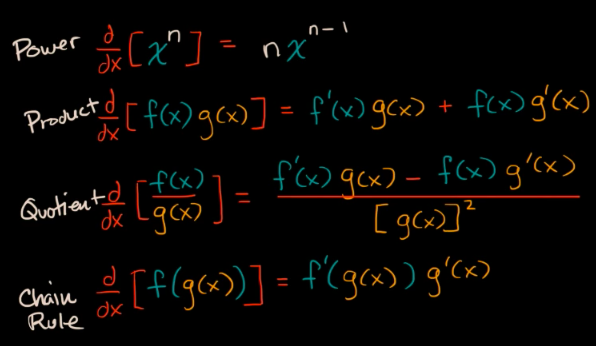 Power d/dx [xⁿ] = n xⁿ⁻¹
Product d/dx [f(x) g(x)] = f'(x) g(x) + f(x) g'(x)
Quotient d/dx [f(x)/g(x)] = (f'(x) g(x) − f(x) g'(x))/[g(x)]²
Chain Rule d/dx [f(g(x))] = f'(g(x)) g'(x)